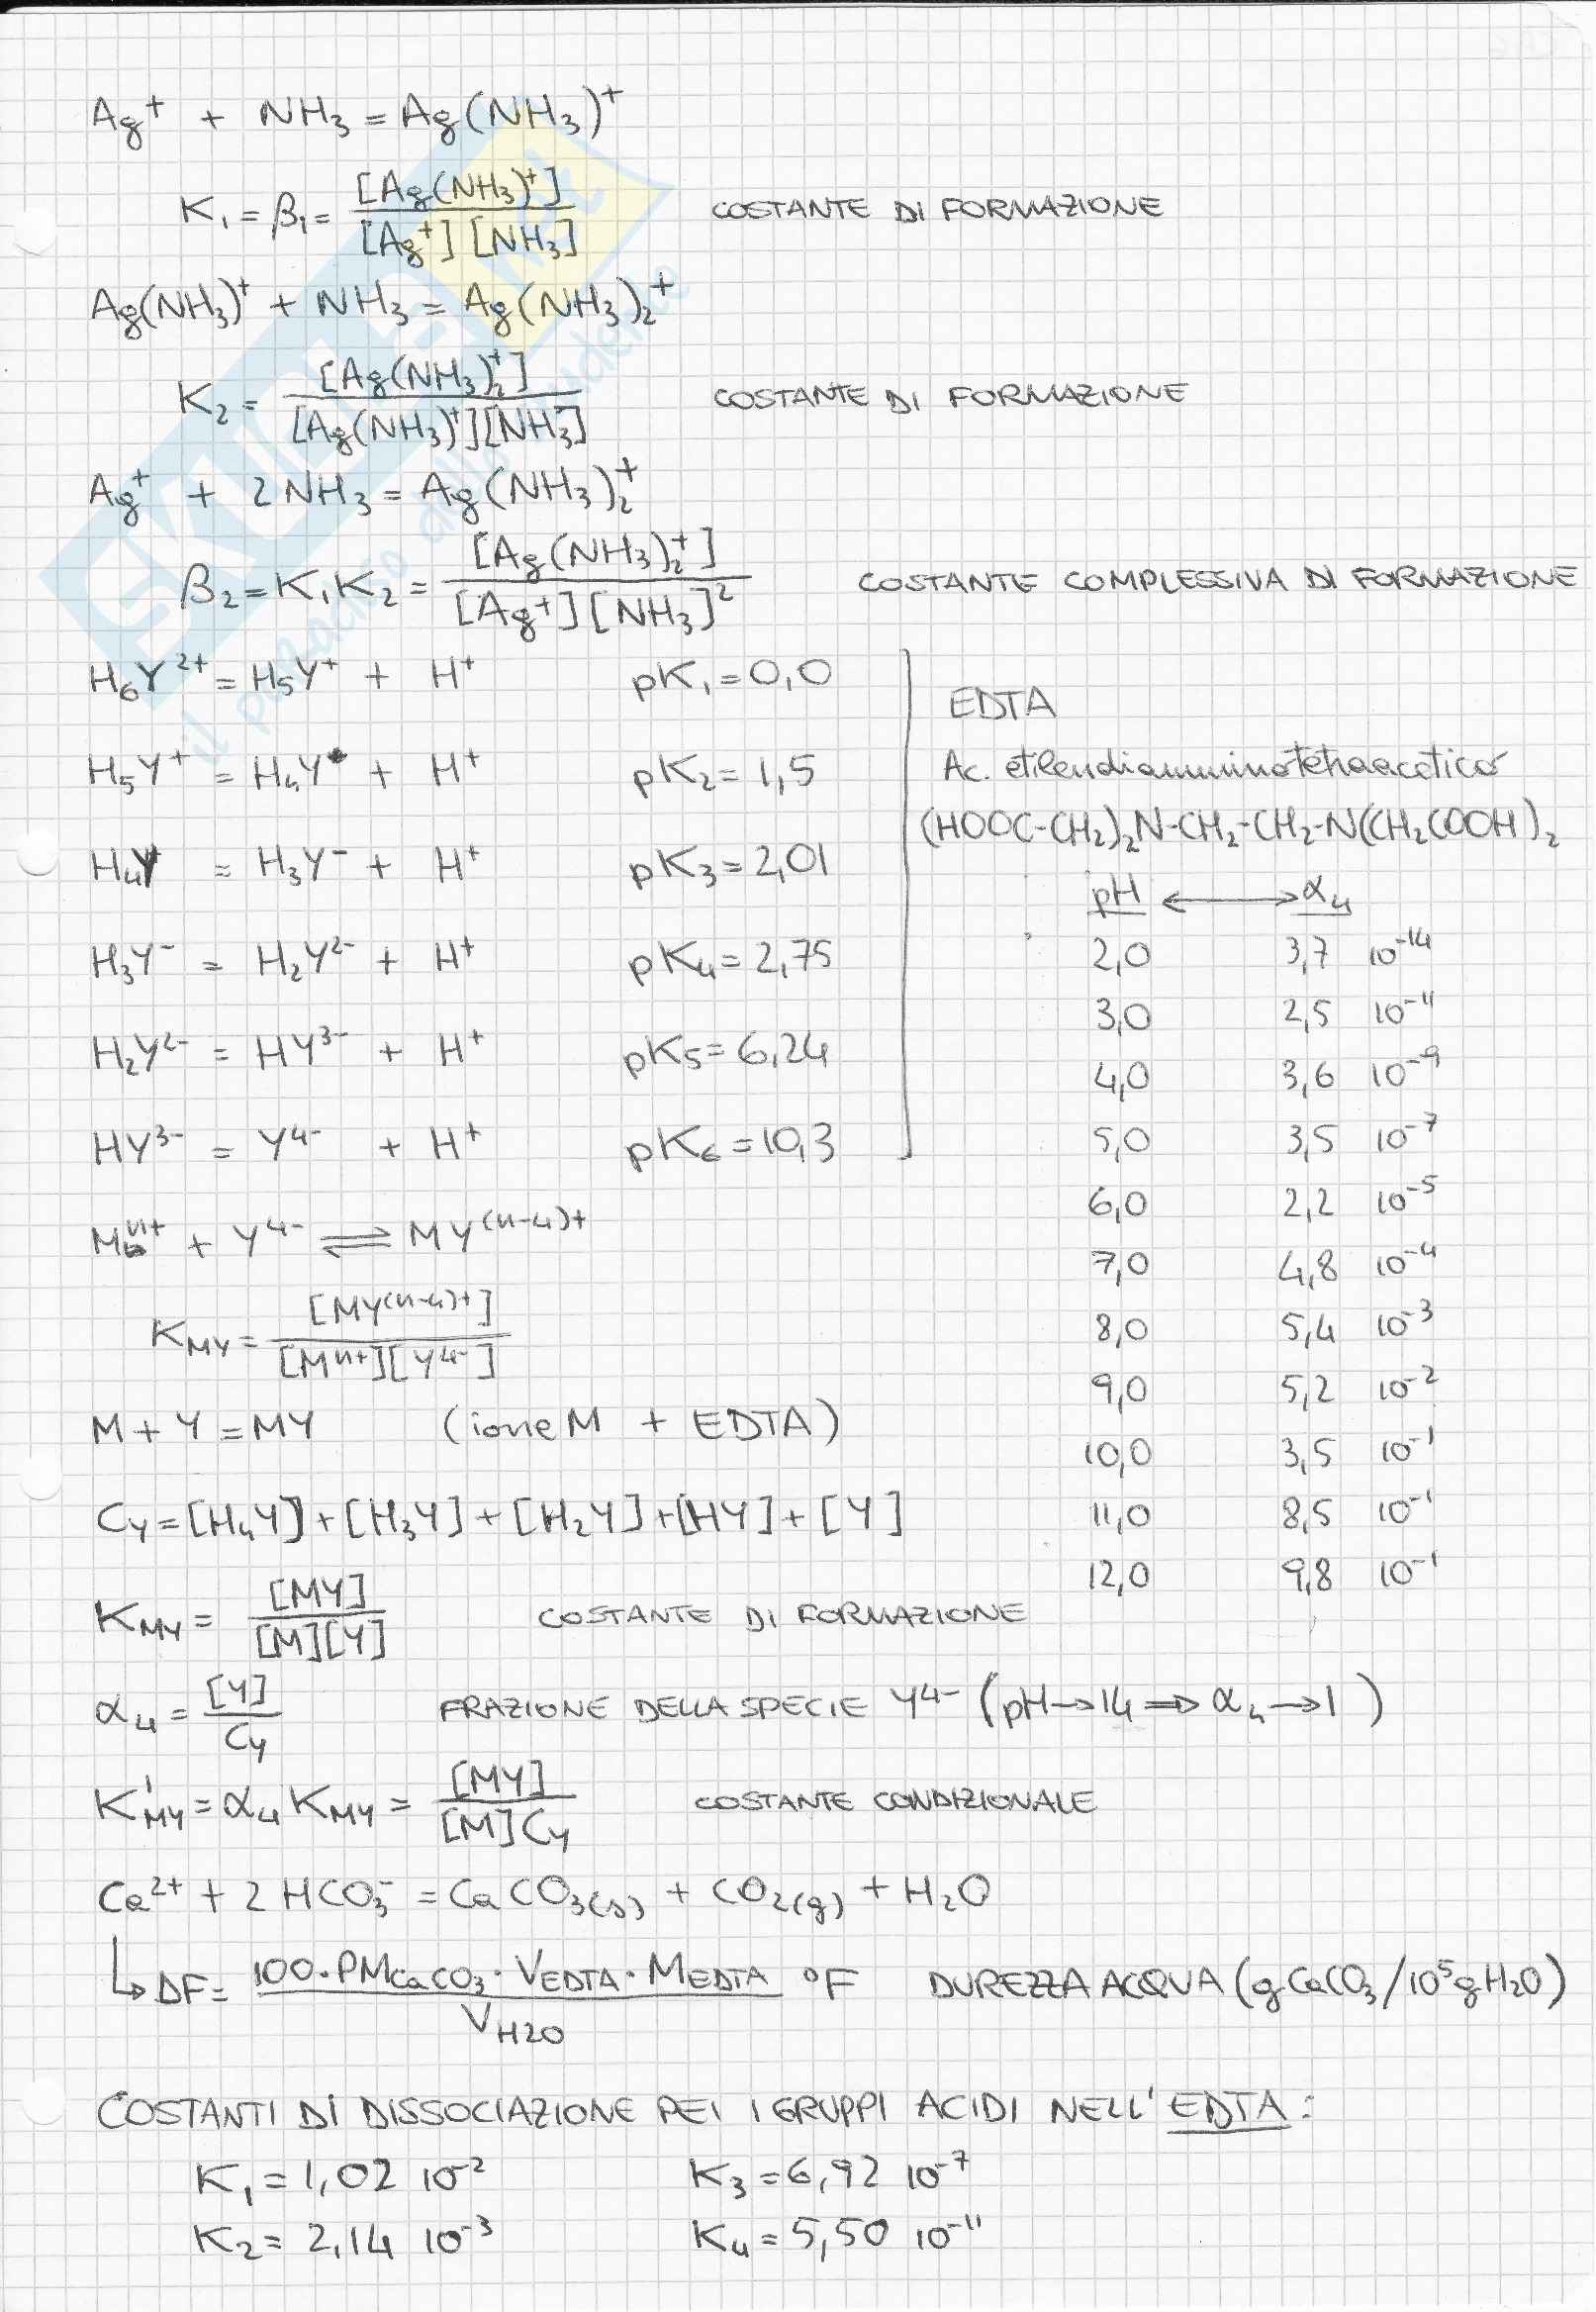 Ag⁺ + NH₃ = Ag(NH₃)⁺
K₁ = β₁ = [Ag(NH₃)⁺] / [Ag⁺][NH₃] COSTANTE DI FORMAZIONE
Ag(NH₃)⁺ + NH₃ = Ag(NH₃)₂⁺
K₂ = [Ag(NH₃)₂⁺] / [Ag(NH₃)⁺][NH₃] COSTANTE DI FORMAZIONE
Ag⁺ + 2NH₃ = Ag(NH₃)₂⁺
β₂ = K₁K₂ = [Ag(NH₃)₂⁺] / [Ag⁺][NH₃]² COSTANTE COMPLESSIVA DI FORMAZIONE
H₆Y²⁺ = H₅Y⁺ + H⁺ pK₁ = 0,0
H₅Y⁺ = H₄Y + H⁺ pK₂ = 1,5
H₄Y = H₃Y⁻ + H⁺ pK₃ = 2,01
H₃Y⁻ = H₂Y²⁻ + H⁺ pK₄ = 2,75
H₂Y²⁻ = HY³⁻ + H⁺ pK₅ = 6,24
HY³⁻ = Y⁴⁻ + H⁺ pK₆ = 10,3
EDTA
Ac. etilendiamminotetraacetico
(HOOC-CH₂)₂N-CH₂-CH₂-N((CH₂COOH)₂
pH ⟷ α₄
2,0 3,7 10⁻¹⁴
3,0 2,5 10⁻¹¹
4,0 3,6 10⁻⁹
5,0 3,5 10⁻⁷
6,0 2,2 10⁻⁵
7,0 4,8 10⁻⁴
8,0 5,4 10⁻³
9,0 5,2 10⁻²
10,0 3,5 10⁻¹
11,0 8,5 10⁻¹
12,0 9,8 10⁻¹
Mⁿ⁺ + Y⁴⁻ ⇌ MY⁽ⁿ⁻⁴⁾⁺
K_MY = [MY⁽ⁿ⁻⁴⁾⁺] / [Mⁿ⁺][Y⁴⁻]
M + Y = MY (ione M + EDTA)
C_Y = [H₄Y] + [H₃Y] + [H₂Y] + [HY] + [Y]
K_MY = [MY] / [M][Y] COSTANTE DI FORMAZIONE
α₄ = [Y] / C_Y FRAZIONE DELLA SPECIE Y⁴⁻ (pH → 14 ⇒ α₄ → 1)
K'_MY = α₄ K_MY = [MY] / [M]C_Y COSTANTE CONDIZIONALE
Ca²⁺ + 2HCO₃⁻ = CaCO₃(s) + CO₂(g) + H₂O
↳ DF = 100·PM_CaCO₃·V_EDTA·M_EDTA / V_H2O °F DUREZZA ACQUA (gCaCO₃/10⁵gH₂O)
COSTANTI DI DISSOCIAZIONE PEI I GRUPPI ACIDI NELL'EDTA:
K₁ = 1,02 10⁻² K₃ = 6,92 10⁻⁷
K₂ = 2,14 10⁻³ K₄ = 5,50 10⁻¹¹